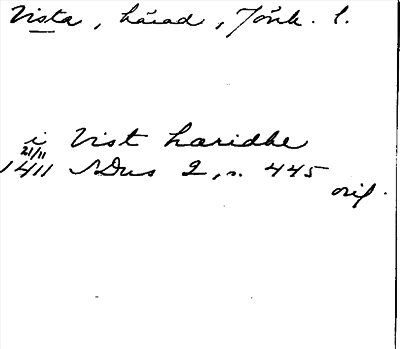 Vista, härad, Jönk. l.
i Vist haridhe
21/11
1411 SDns 2, s. 445
orig.